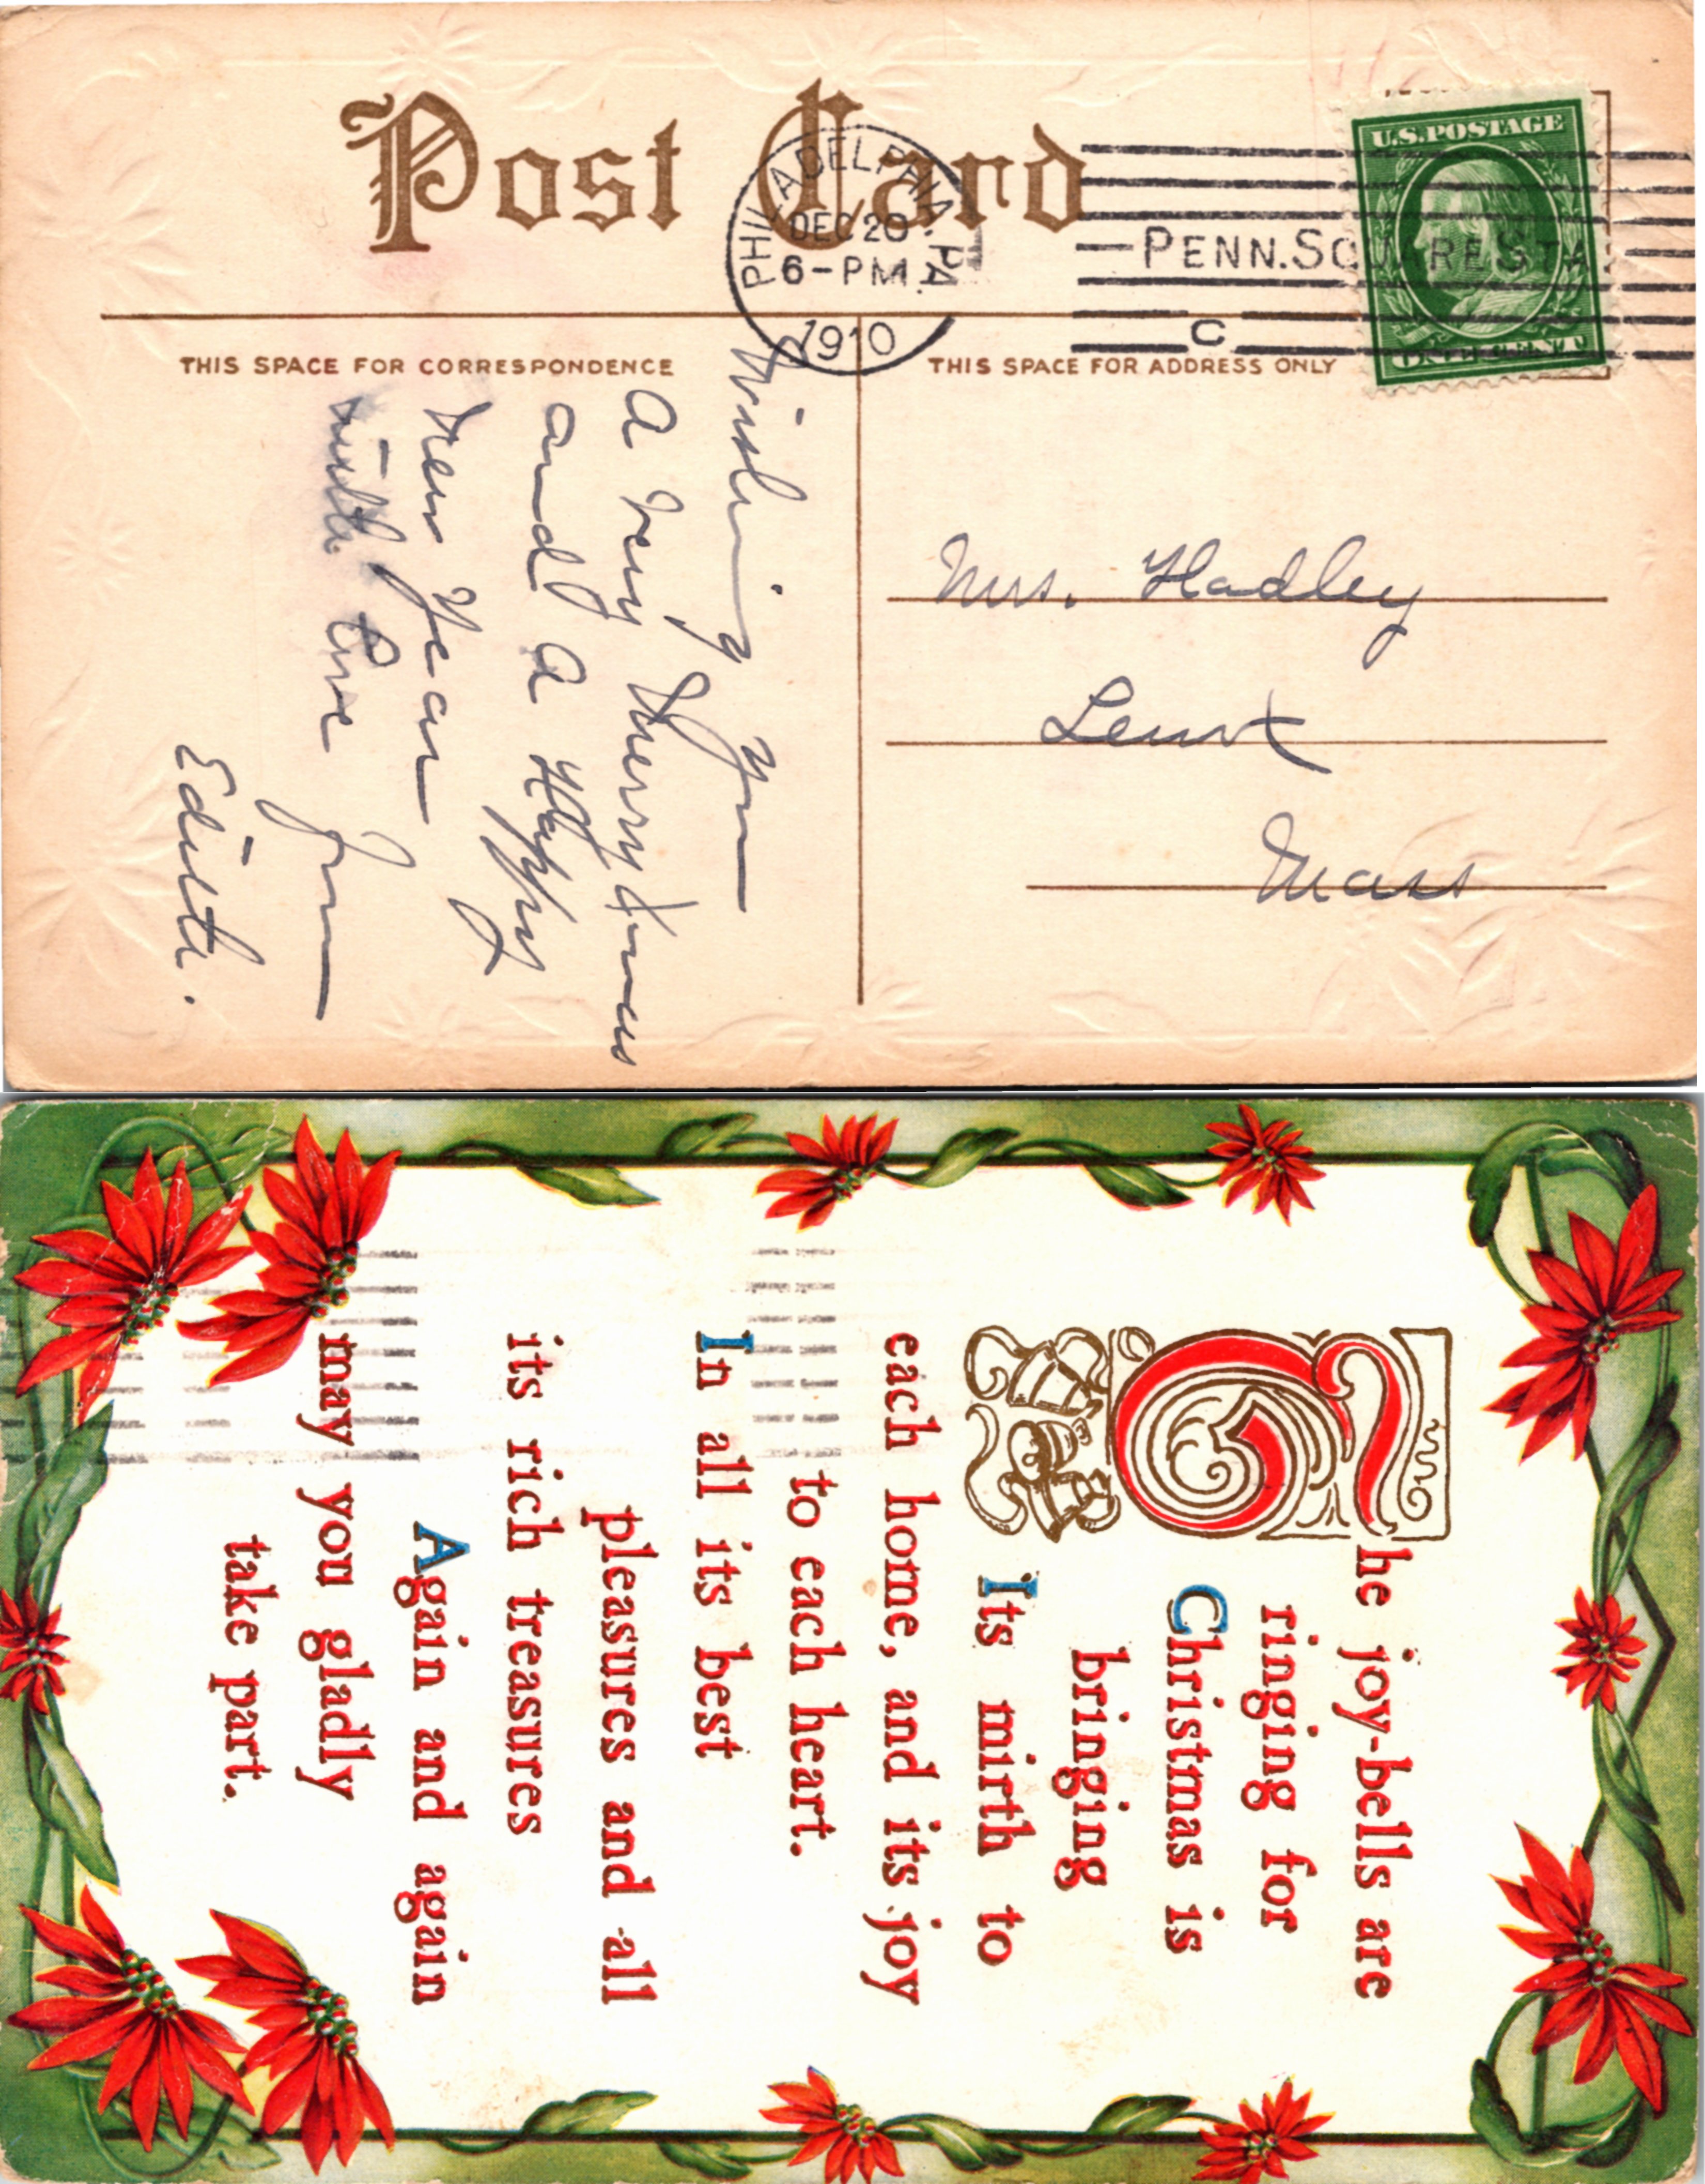 Post Card
PHILADELPHIA. PA.
DEC 20
6-PM
1910
PENN. SQUARE STA.
C
U.S. POSTAGE
ONE CENT
THIS SPACE FOR CORRESPONDENCE
THIS SPACE FOR ADDRESS ONLY
Wishing you
A very Merry Xmas
and A Happy
New Year
with love from
Edith.
Mrs. Hadley
Lenox
Mass
The joy-bells are
ringing for
Christmas is
bringing
Its mirth to
each home, and its joy
to each heart.
In all its best
pleasures and all
its rich treasures
Again and again
may you gladly
take part.